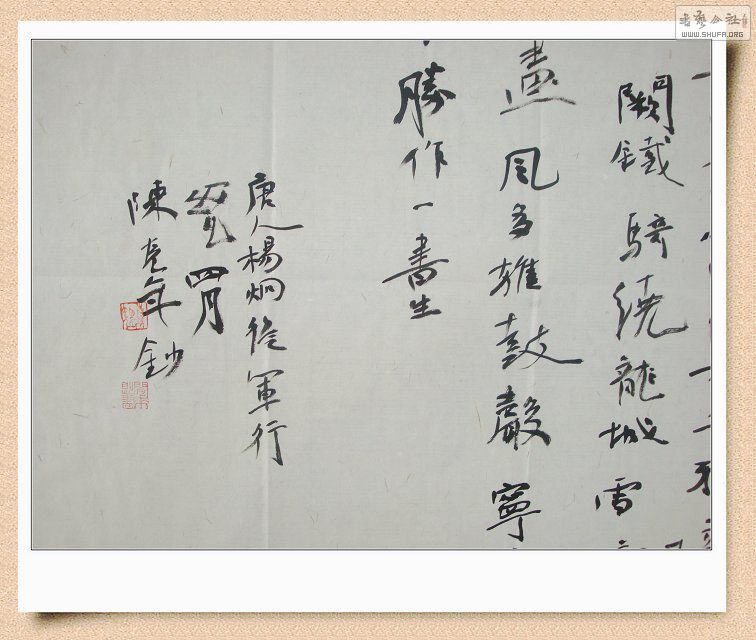 闕鐵騎繞龍城雪
畫風多雜鼓聲寧
勝作一書生
唐人楊炯從軍行
四月
陳年鈔
書藝公社
WWW.SHUFA.ORG